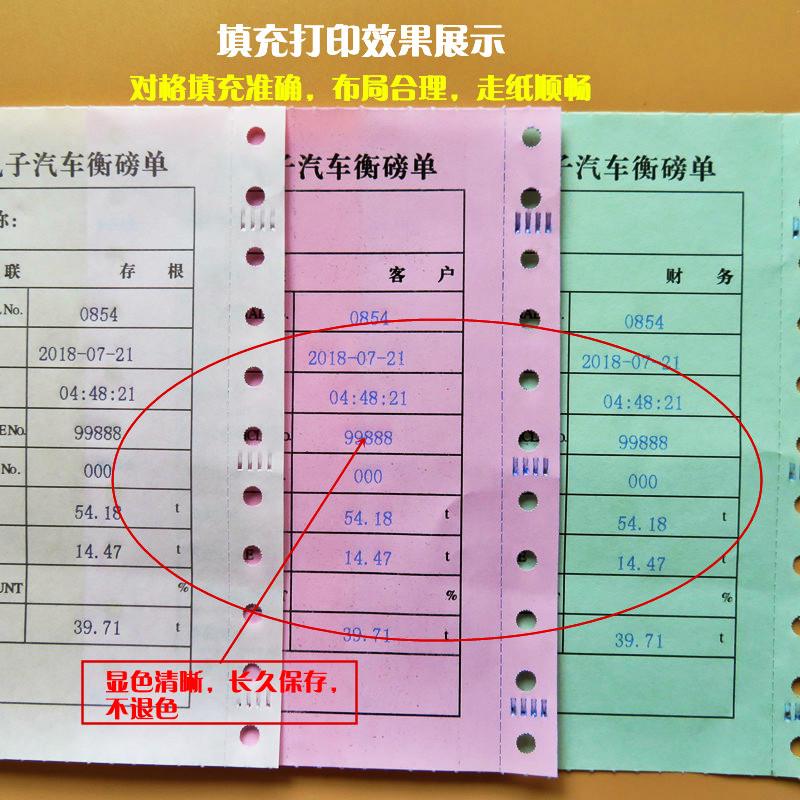 填充打印效果展示
对格填充准确，布局合理，走纸顺畅
子汽车衡磅单
称:
联 存 根
.No. 0854
2018-07-21
04:48:21
E No. 99888
No. 000
54.18 t
14.47 t
UNT %
39.71 t
子汽车衡磅单
客 户
0854
2018-07-21
04:48:21
99888
000
54.18 t
14.47 t
%
39.71 t
子汽车衡磅单
财 务
0854
2018-07-21
04:48:21
99888
000
54.18 t
14.47 t
%
39.71 t
显色清晰，长久保存，
不退色